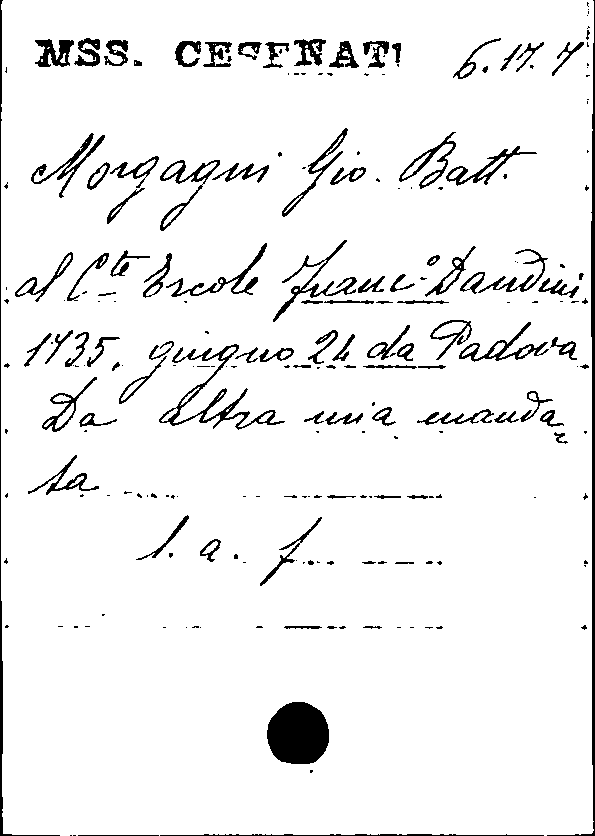 MSS. CESENATI 6.17.7
Morgagni Gio. Batt.
al C.te Ercole Franc.o Dandini
1735, giugno 24 da Padova
Da altra mia manda=
ta
l. a. f.